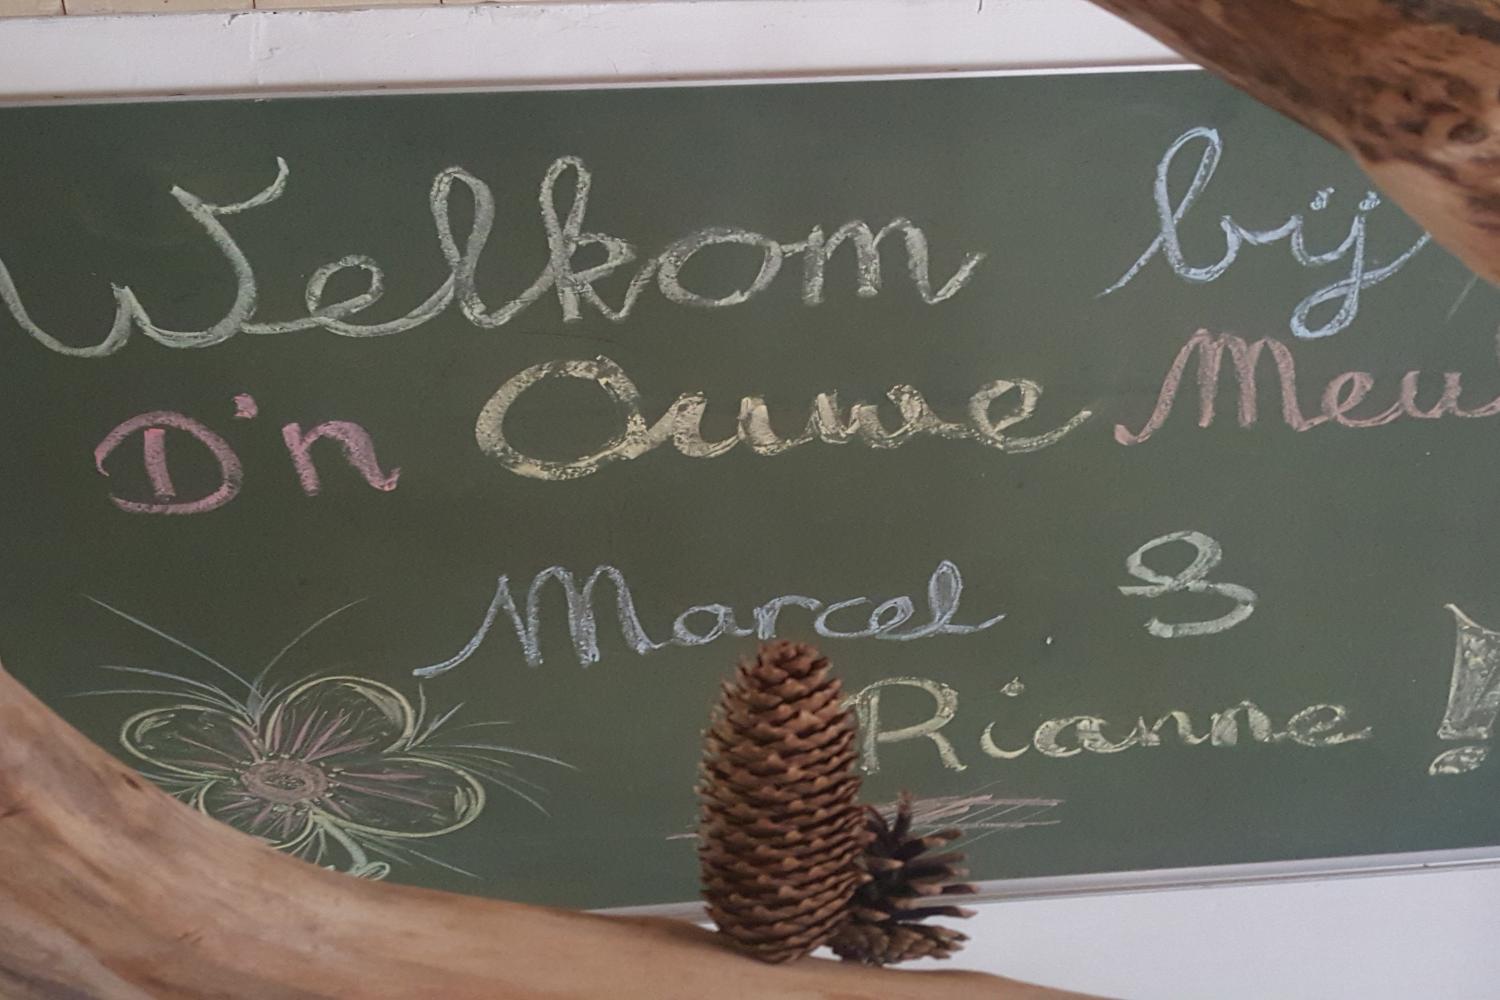 Welkom bij
D'n Ouwe Meu
Marcel &
Rianne!